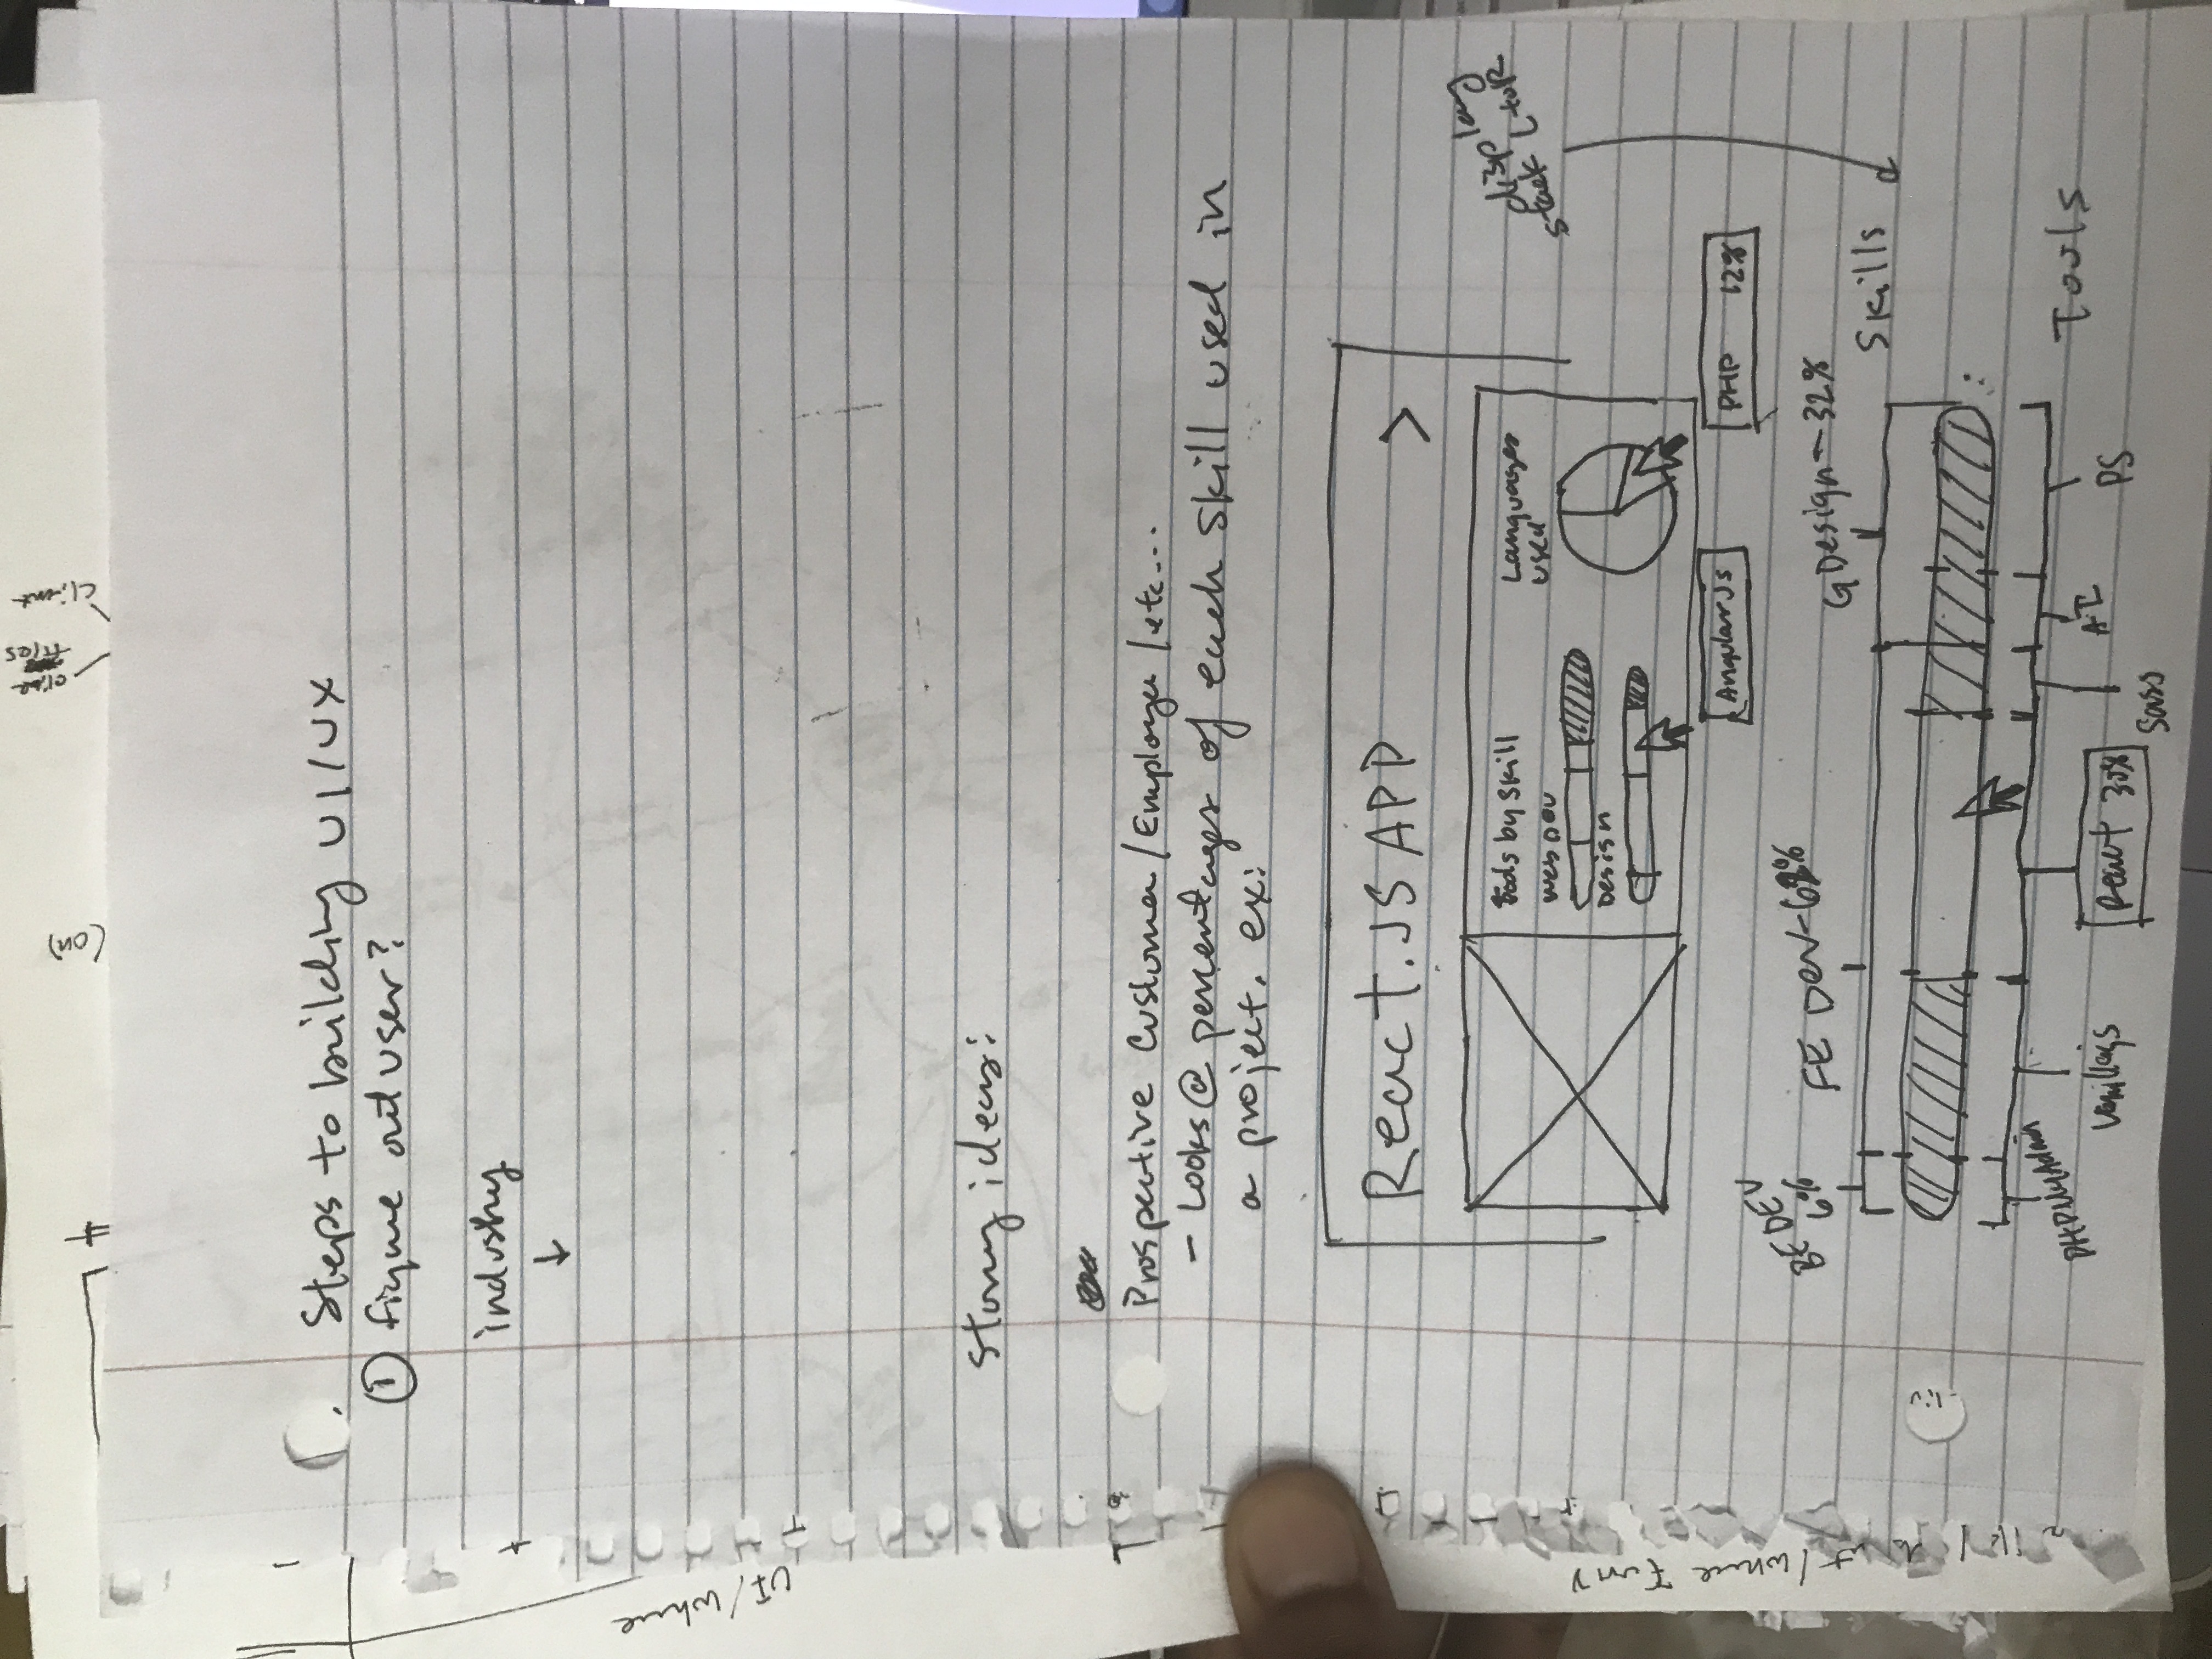 (on)
client
files
client
UI/where
Steps to building UI/UX
① figure out user?
industry
↓
Story ideas:
Prospective Customer/Employer/etc...
- Looks @ percentages of each skill used in
a project. ex:
React.JS APP >
Tools by skill
Web Dev
Design
Languages
used
AngularJS
PHP 12%
display
stack L to R
BE DEV
6%
FE Dev - 62%
GDesign - 32%
Skills
PHPMyAdmin
Vanillajs
React 30%
Sass
AI
PS
Tools